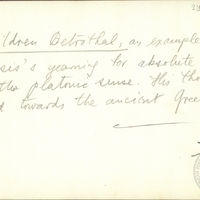 ildren Betrothal, an example
sis's yearning for absolute
the platonic sense. His tho
towards the ancient Gree